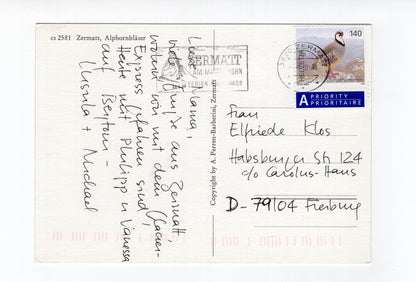 cs 2581 Zermatt, Alphornbläser
Liebe Mama,
viele Grüsse aus Zermatt,
wohin wir mit dem Glacier-
Express gefahren sind,
Heute mit Philipp u Vanessa
auf Bergtour –
Ursula + Michael
Copyright by A. Perren-Barberini, Zermatt
ZERMATT
AM MATTERHORN
3920 ZERMATT
140
HELVETIA
A PRIORITY
PRIORITAIRE
Frau
Elfriede Klos
Habsburger Str 124
c/o Carolus-Haus
D-79104 Freiburg